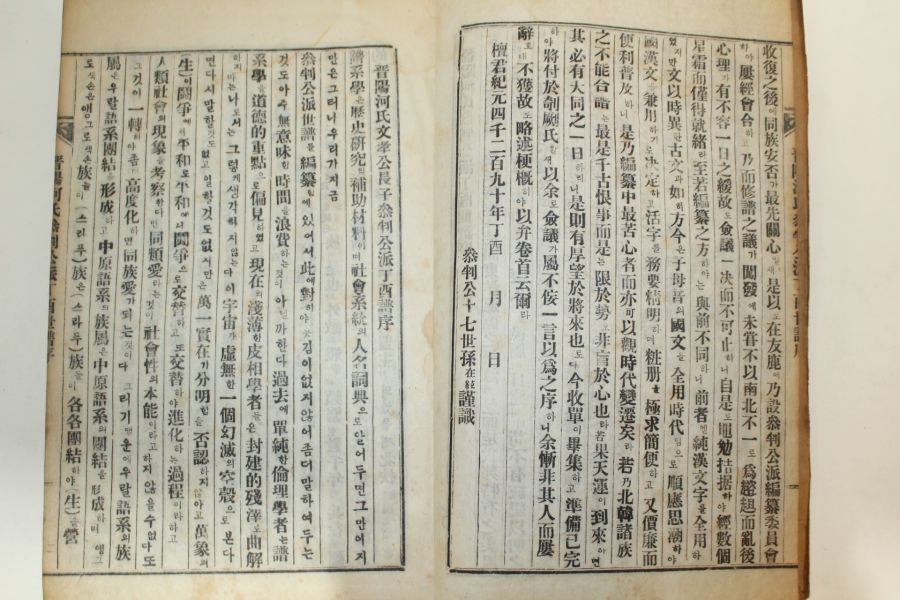 收復之後에同族安否가最先關心일새是以로在友鹿이乃設叅判公派編纂委員會
하야屢經會合하고乃而修譜之議가闖發에未甞不以南北不一로爲趑趄而亂後
心理가有不容一日之緩故로僉議一决而不可止하니自是로黽勉拮据하야經數個
星霜而僅得就緒라至若編纂之方하야는與前不同하니前者엔純漢文字를全用하
엿지만文以時異한古文과如히方今은子母音의國文을全用時代됨으로順應思潮하야
國漢文을兼用하기로决定하고活字를務要精明하며粧册을極求簡便하고又價廉而
便利普及하니是乃編纂中最苦心者而亦可以觀時代變遷矣라若乃北韓諸族
之不能合譜는最是千古恨事而是는限於勢오非言於心也라若果天運이到來하면
其必有大同之一日하리니是則有厚望於將來也로다今收單이畢集하고準備已完
하야將付於剞劂氏할새以余로僉議가屬不佞一言以爲之序하니余慚非其人而屢
辭호대不獲故로略述梗槪하야以弁卷首云爾라
檀君紀元四千二百九十年丁酉 月 日
叅判公十七世孫在鉉謹識
晋陽河氏文孝公長子叅判公派丁酉譜序
譜系學은歷史硏究의補助材料이며社會系統의人名詞典으로알어두면그만이지
만은그러나우리가지금
叅判公派世譜를編纂함에있어서此에對하야느낌이없지않어좀더말하여두는
것도아주無意味한時間을浪費하는것이아닌까한다過去에單純한倫理學者는譜
系學을道德的重點으로偏見하였고現在의淺薄한皮相學者들은封建的殘滓로曲解
하지마는나로서는그렇게생각하지않는다이宇宙가虛無한一個幻滅의空殼으로본다
면다시말할것도없고일할것도없지만은萬一實在가分明함을否認하지않아고萬象의
(生)이鬪爭에서平和로平和에서鬪爭으로交替하고또交替하야進化하는過程이라하고
人類社會의現象을考察한다면同類愛라는것이社會性의本能이라고하지않을수없다또
그것이一轉하야좀더高度化하면同族愛가되는것이다그리기때문에우랄語系의族
屬은우랄語系團結을形成하고中原語系의族屬은中原語系의團結을形成하며앵그
로색손은앵그로색손族들이(스리푸)族은(스라푸)族들이各各團結하야(生)을營
晋陽河氏叅判公派丁酉世譜序